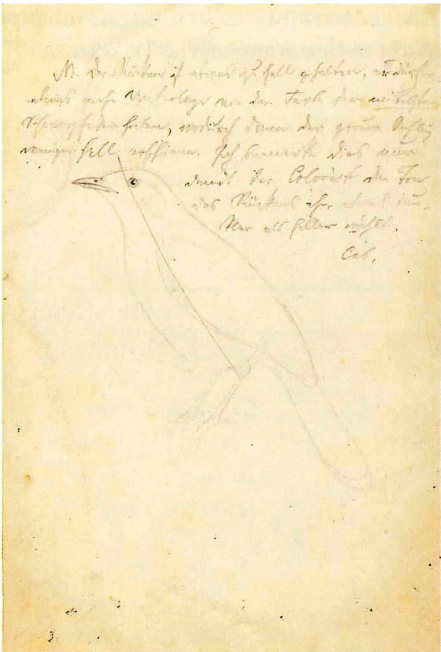 N. Der Rücken ist etwas zu hell gehalten, er dürfte
etwas mehr von der Farbe der mittelsten
Schwanzfedern haben, wodurch dann der grüne
weniger hell erschiene. Ich bemerke dies nur
damit der Colorist den Ton
des Rückens eher etwas dun-
kler als heller macht.
Cab.
3.